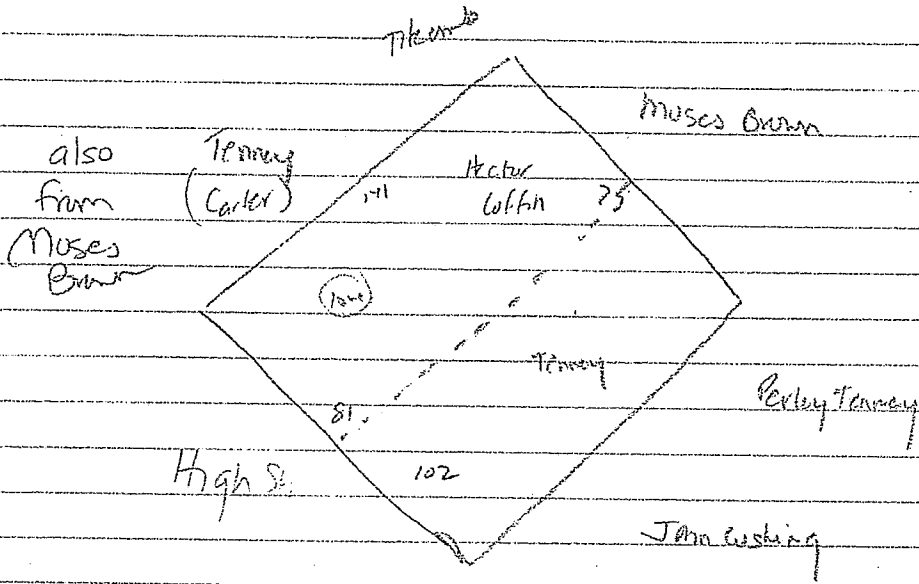 Moses Brown
also
from
Moses
Brown
Tenney
(Carter)
Hector
Coffin
141
75
lane
Tenney
81
Perley Tenney
High St.
102
John Cushing